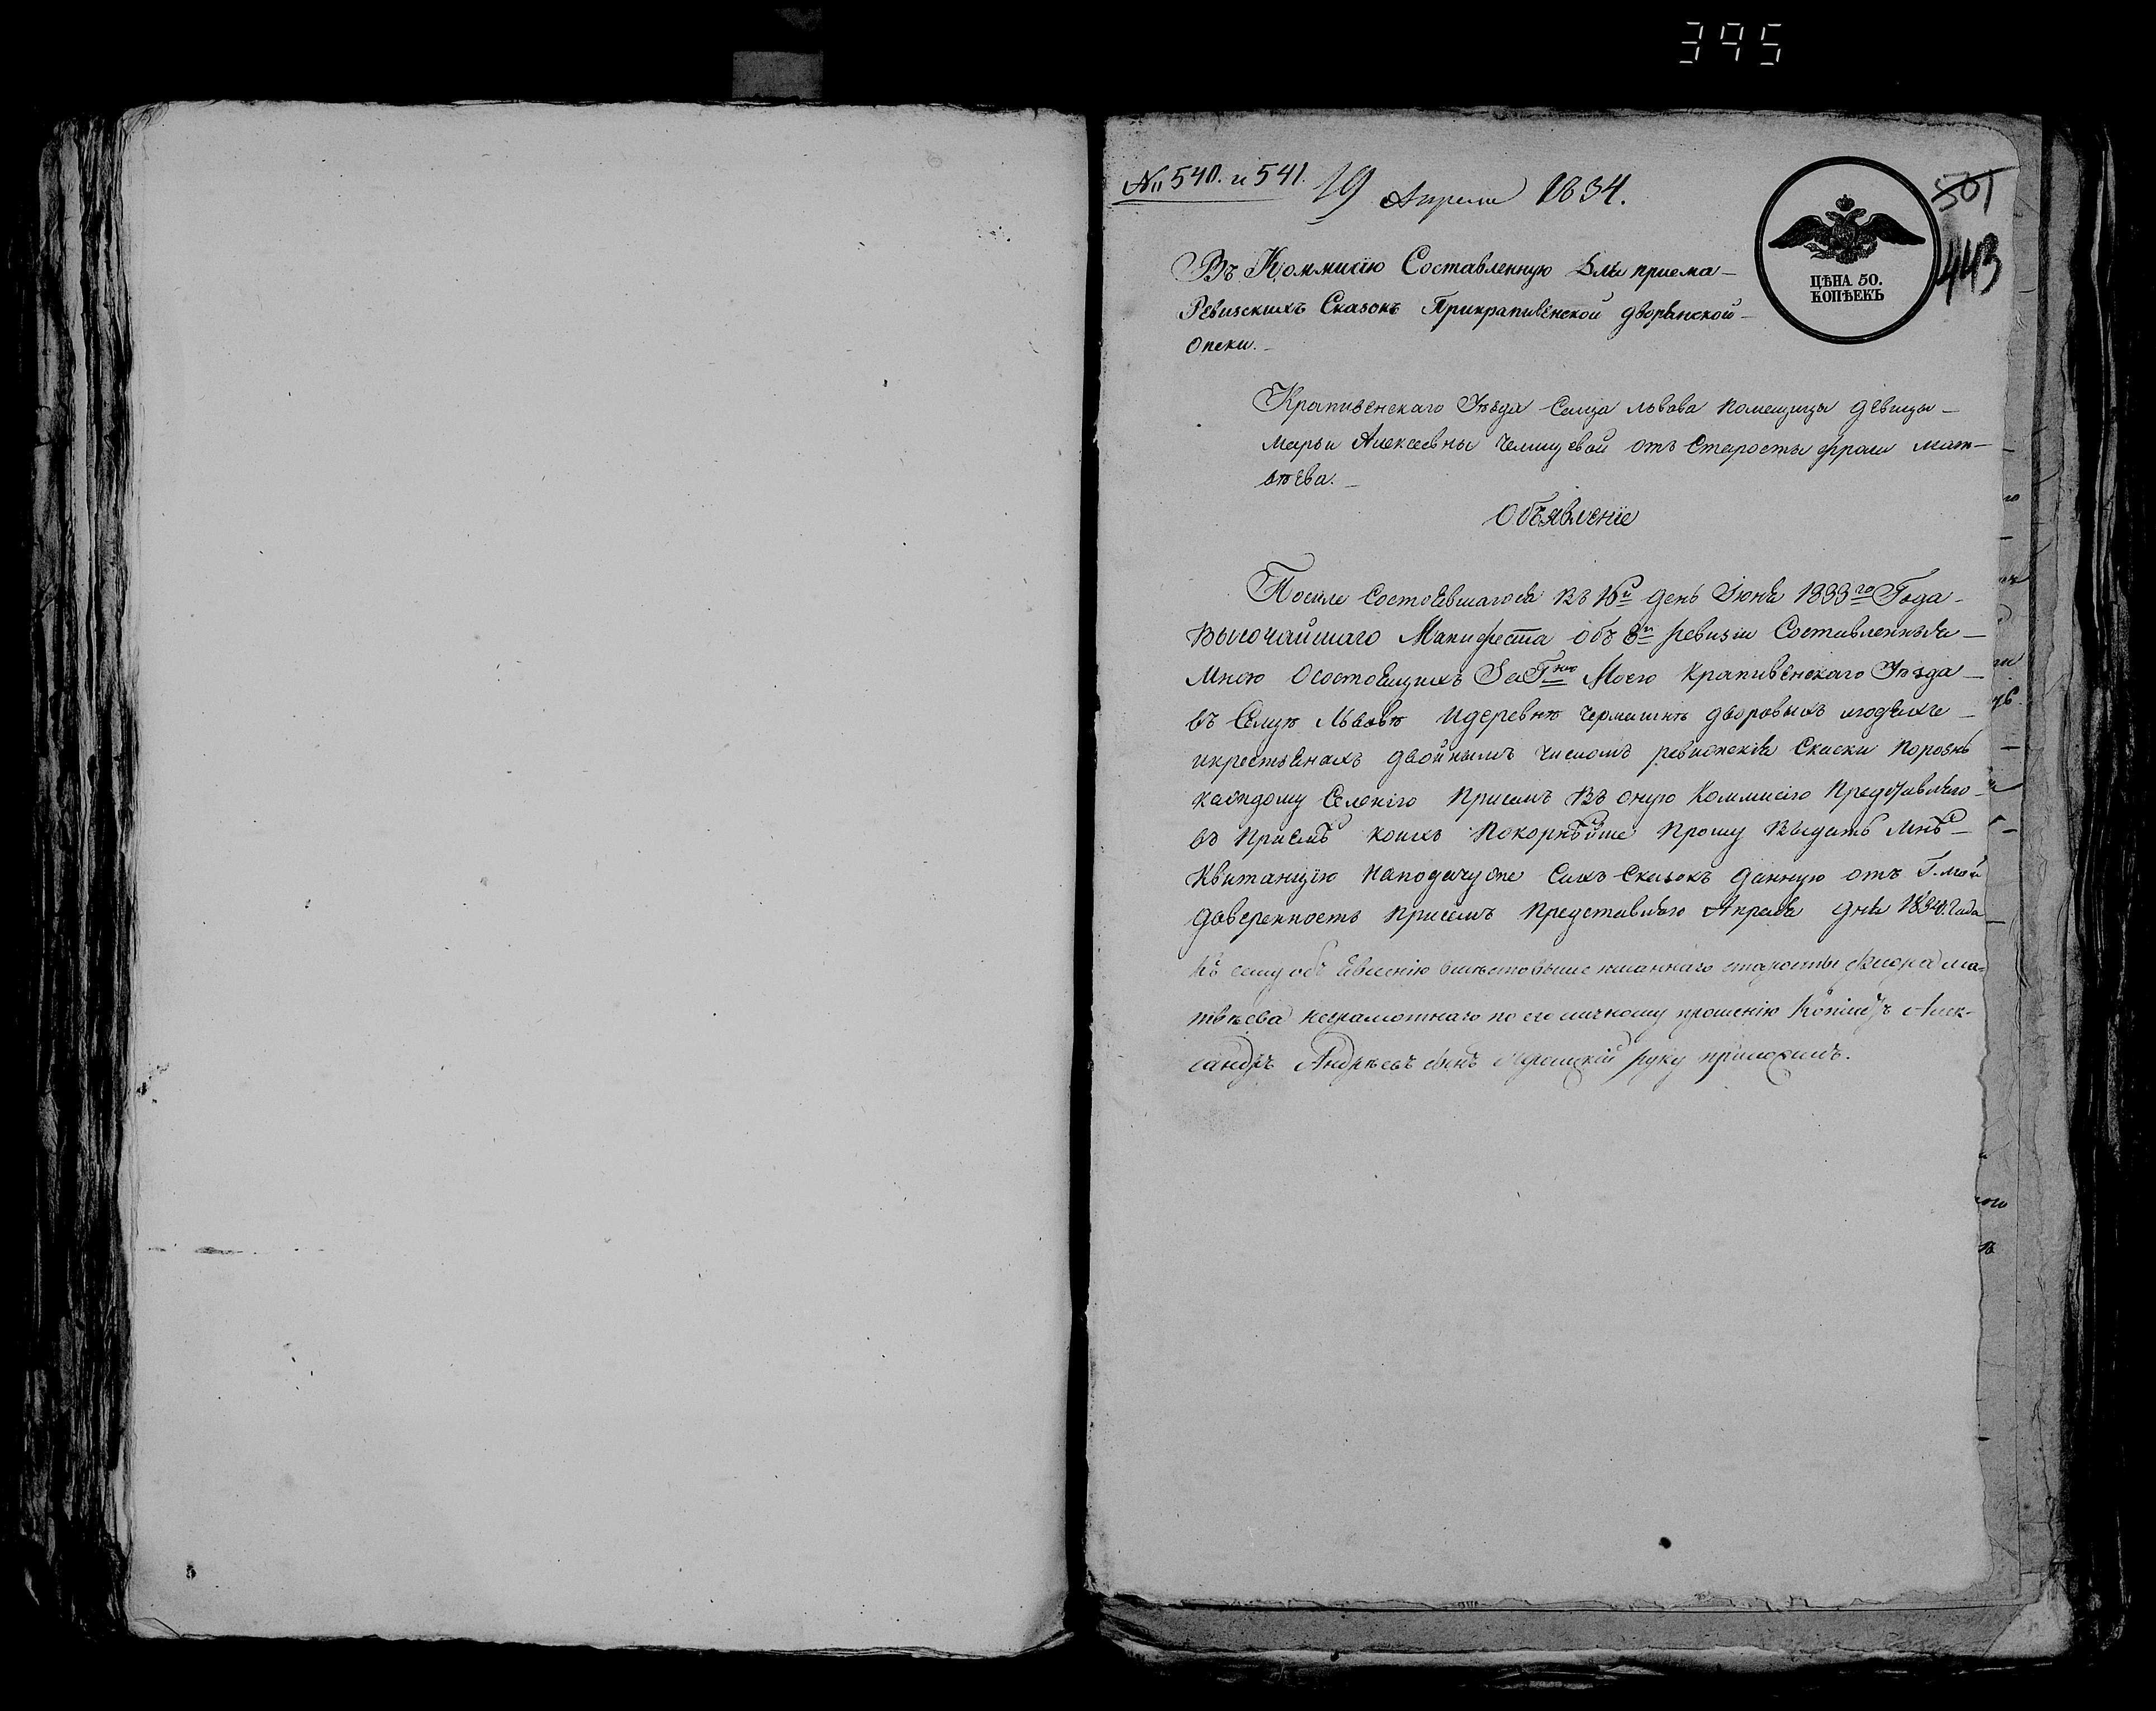 395
№ 540. и 541. 19 Апреля 1834.
501
443
ЦѢНА 50.
КОПѢЕКЪ
Въ Коммисію Составленную Для приема
Ревизскихъ Сказокъ Прикрапивенской дворянской
Опеки.
Крапивенскаго Уѣзда Сельца львова помещицы девицы
марьи Алексеевны Челищевой отъ Старосты фрола мат-
вѣева.
Объявленіе
После Состоявшагося въ 16й день Іюня 1833го Года
Высочайшаго Манифеста объ 8й ревизіи Составленныя
Мною Осостоящихъ За Гжою Моею Крапивенскаго Уѣзда
въ Сельцѣ Львовѣ Идеревнѣ Чермошнѣ дворовыхъ людяхъ
икрестьянахъ двойнымъ числомъ ревизския Скаски порознь
каждому Селенію Присемъ Въ оную Коммисію Представляю
въ Приемѣ коихъ Покорнѣйше Прошу Выдать Мнѣ
Квитанцію Наподачу оне Сихъ Сказокъ данную отъ Г. моей
доверенность присемъ Представляю Апреля дня 1834. Года
Къ сему объ явленію вместо выше писаннаго старосты Флора ма-
твѣева неграмотнаго по его личному прошенію Копіистъ Алек-
сандръ Андрѣевъ сынъ руку приложилъ.